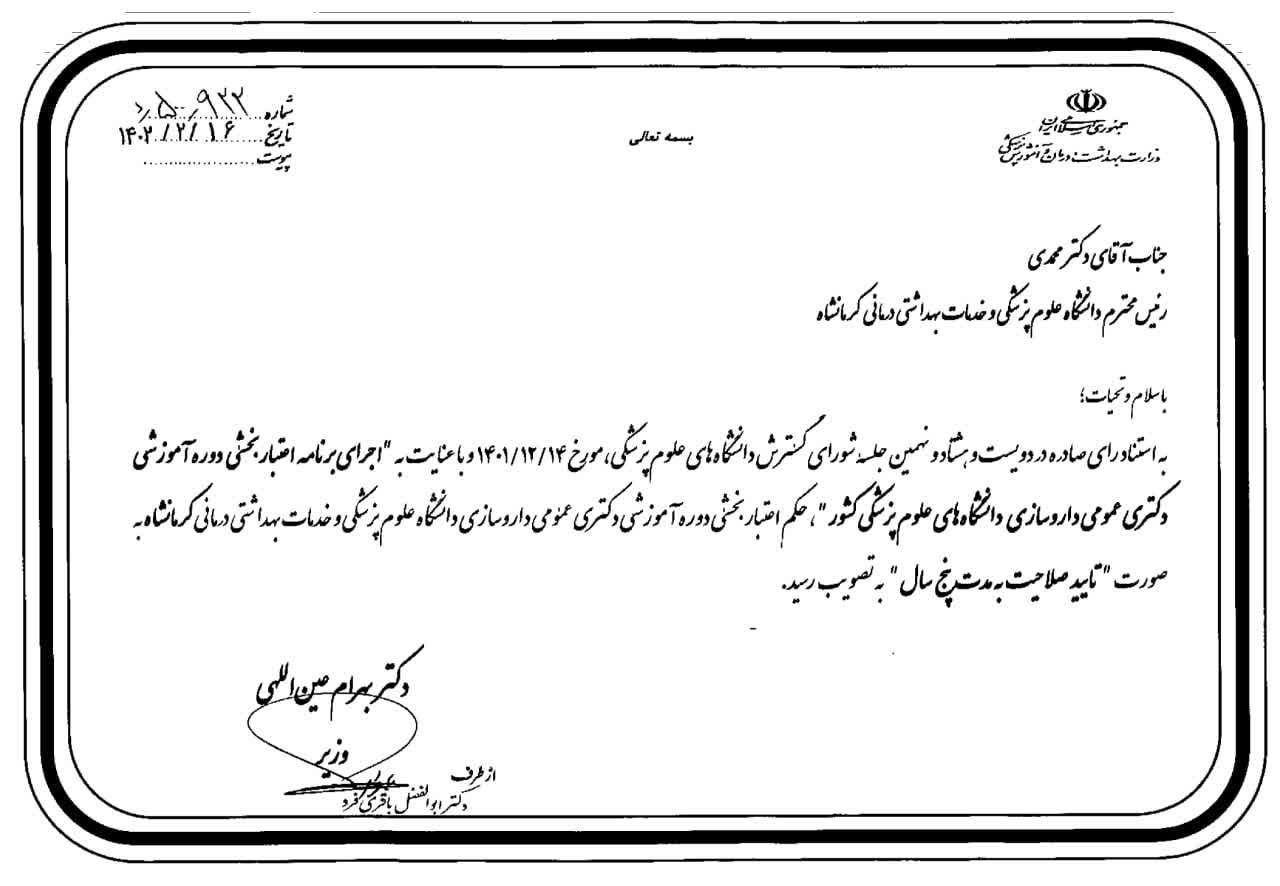 جمهوری اسلامی ایران
وزارت بهداشت، درمان و آموزش پزشکی
بسمه تعالی
شماره
تاریخ ۱۴۰۲/۲/۱۶
پیوست
جناب آقای دکتر محمدی
رئیس محترم دانشگاه علوم پزشکی و خدمات بهداشتی درمانی کرمانشاه
با سلام و تحیات؛
به استناد رای صادره در دویست و هشتاد و نهمین جلسه شورای گسترش دانشگاه های علوم پزشکی، مورخ ۱۴۰۱/۱۲/۱۴ و با عنایت به "اجرای برنامه اعتبار بخشی دوره آموزشی
دکتری عمومی داروسازی دانشگاه های علوم پزشکی کشور"، حکم اعتبار بخشی دوره آموزشی دکتری عمومی داروسازی دانشگاه علوم پزشکی و خدمات بهداشتی درمانی کرمانشاه به
صورت "تایید صلاحیت به مدت پنج سال" به تصویب رسید.
دکتر بهرام عین اللهی
وزیر
از طرف
دکتر ابوالفضل باقری فرد